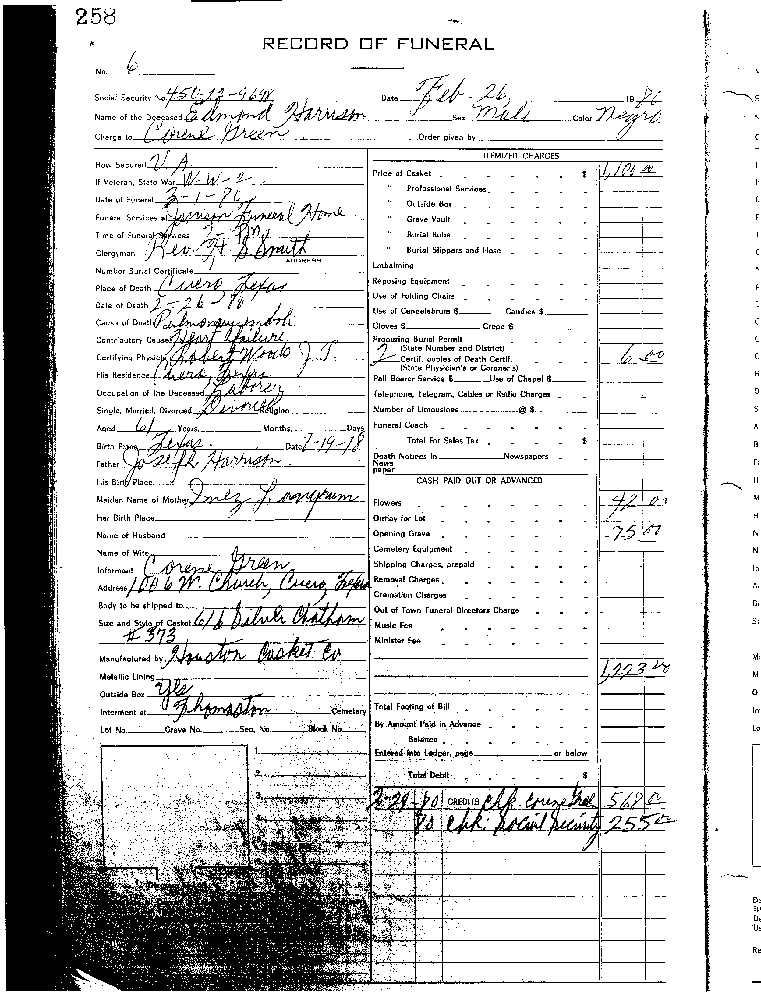 258
RECORD OF FUNERAL
No. 6
Social Security No. Date Feb-26, 19 80
Name of the Deceased Edmond Harrison Sex Male Color Negro
Charge to Corene Green Order given by
How Secured V A
If Veteran, State War W-W-2
Date of Funeral 3-1-80
Funeral Services at Funeral Home
Time of Funeral Services
Clergyman Rev. H S Smith
ADDRESS
Number Burial Certificate
Place of Death Cuero, Texas
Date of Death 2-26-80
Cause of Death Pulmonary
Contributory Causes Heart Failure
Certifying Physician Robert Woods J.P.
His Residence Cuero, Texas
Occupation of the Deceased Laborer
Single, Married, Divorced Religion
Aged 61 Years, Months, Days
Birth Place Texas Date -19-18
Father Joseph Harrison
His Birth Place
Maiden Name of Mother Inez
Her Birth Place
Name of Husband
Name of Wife
Informant Corene Green
Address 1006 W. Church, Cuero, Texas
Body to be shipped to
Size and Style of Casket 6/6 Silver Chatham
# 373
Manufactured by Houston Casket Co
Metallic Lining
Outside Box Yes
Interment at Thomaston Cemetery
Lot No. Grave No. Sec. No. Block No.
1.
2.
3.
ITEMIZED CHARGES
Price of Casket $ 1,100 00
" Professional Services
" Outside Box
" Grave Vault
" Burial Robe
" Burial Slippers and Hose
Embalming
Reposing Equipment
Use of Folding Chairs
Use of Candelabrum $ Candles $
Gloves $ Crepe $
Procuring Burial Permit
(State Number and District)
2 Certif. copies of Death Certif. 6 00
(State Physician's or Coroner's)
Pall Bearer Service $ Use of Chapel $
Telephone, Telegram, Cables or Radio Charges
Number of Limousines @ $
Funeral Coach
Total For Sales Tax $
Death Notices In Newspapers
News
paper
CASH PAID OUT OR ADVANCED
Flowers 42 00
Outlay for Lot
Opening Grave 75 00
Cemetery Equipment
Shipping Charges, prepaid
Removal Charges
Cremation Charges
Out of Town Funeral Directors Charge
Music Fee
Minister Fee
1,223 00
Total Footing of Bill
By Amount Paid in Advance
Balance
Entered into Ledger, page or below
Total Debit $
2-29-80 CREDITS chk. 568 0
80 chk: Social Security 255 0